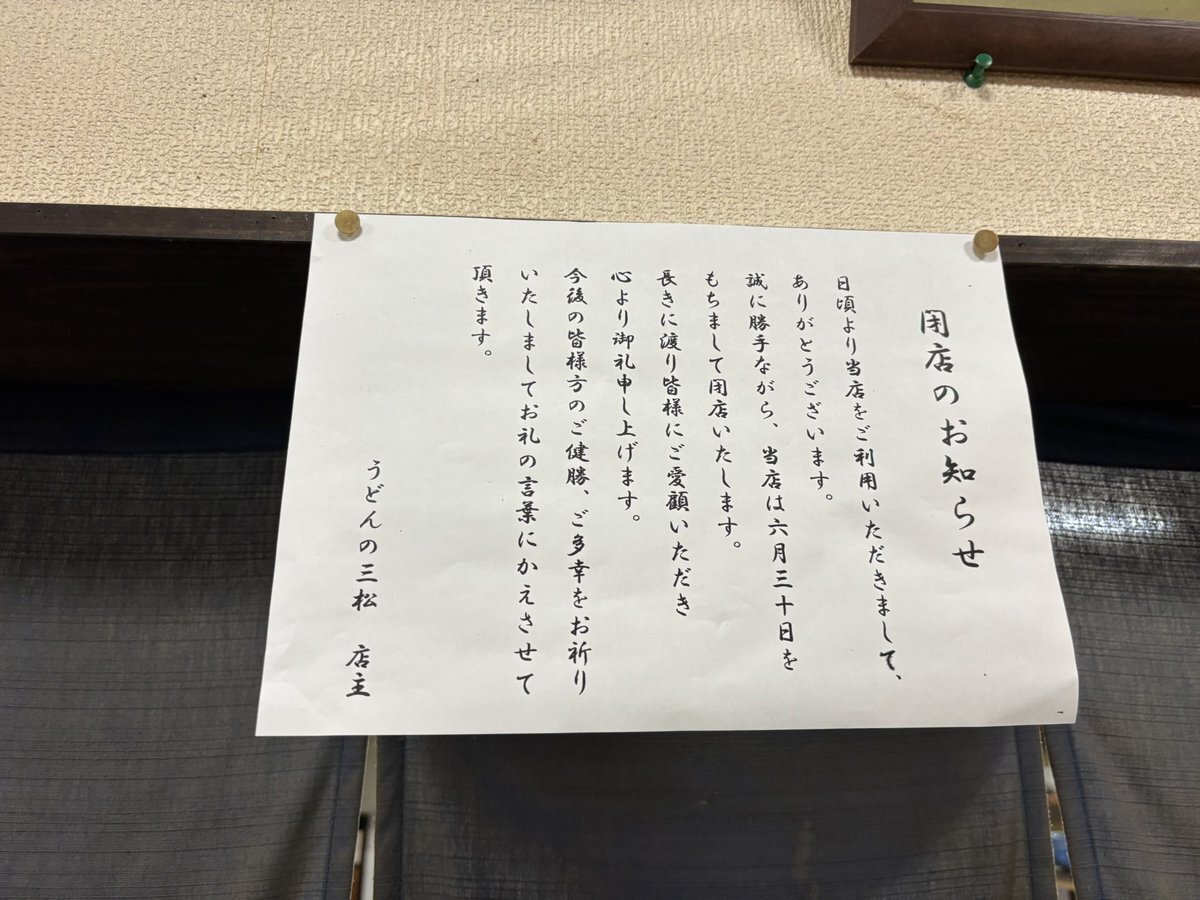 閉店のお知らせ
日頃より当店をご利用いただきまして、
ありがとうございます。
誠に勝手ながら、当店は六月三十日を
もちまして閉店いたします。
長きに渡り皆様にご愛顧いただき
心より御礼申し上げます。
今後の皆様方のご健勝、ご多幸をお祈り
いたしましてお礼の言葉にかえさせて
頂きます。
うどんの三松　店主